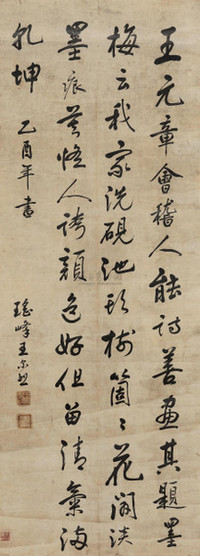 王元章會稽人能詩善畫其題墨
梅云我家洗硯池頭樹箇箇花開淡
墨痕莫怪人誇顏色好但留清氣滿
乾坤
乙酉年書
瑤峰王爾烈